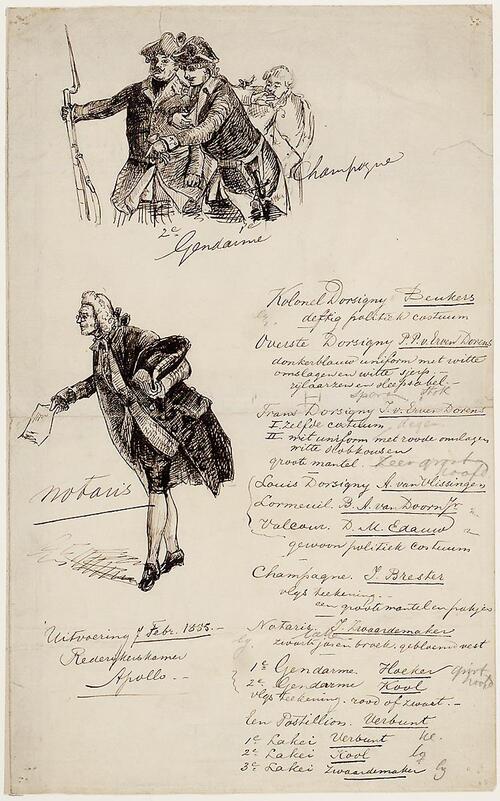 Champagne
2e 1e
Gendarme
Kolonel Dorsigny Beukers
deftig politiek costuum
Overste Dorsigny P.P. v. Erven Dorens
donkerblauw uniform met witte
omslagen en witte sjerp.-
rylaarzen en sleepsabel.-
Sporen Stok
Frans Dorsigny P. v. Erven Dorens
I zelfde costuum degen
II mit uniform met roode omslagen
witte slobkousen
groote mantel.
Louis Dorsigny A. van Vlissingen
Lormeuil. B. A. van Doorn Jr
Valcour. D. M. Edauw
gewoon politiek costuum
notaris
Champagne. J. Brester
vlgs teekening.-
een groote mantel en pakjes
Uitvoering 7 Febr. 1885.-
Rederykerskamer
Apollo.-
Notaris. J. Zwaardemaker
zwarte jas en broek, gebloemd vest
1e Gendarme. Hoeker
2e Gendarme Kool
vlgs teekening. rood of zwart.-
Een Postillion. Verbunt
1e Lakei Verbunt ke.
2e Lakei Kool lg
3e Lakei Zwaardemaker lg